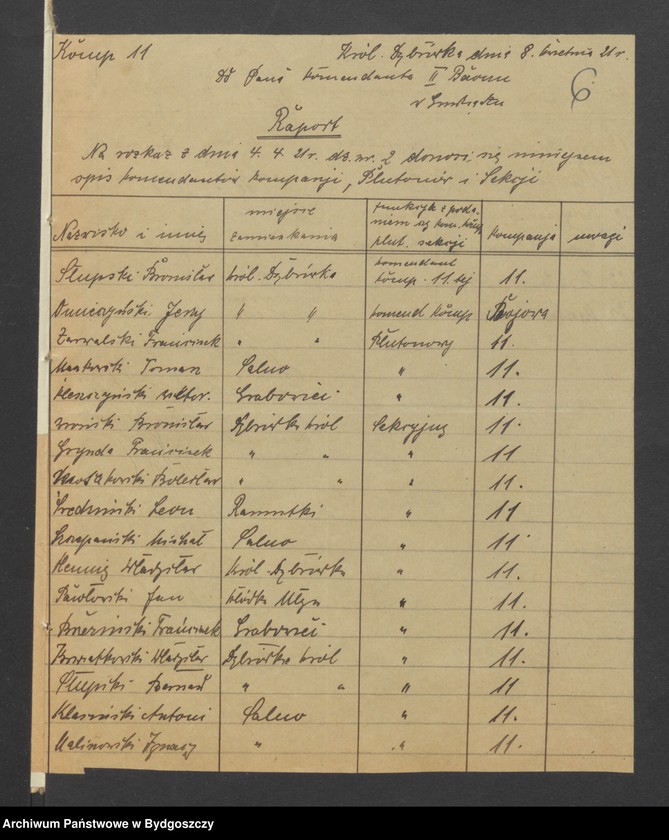 Komp 11
Król. Dąbrówka dnia 8. kwietnia 21 r.
6
Do Pana komendanta II Baonu
w Grudziądzu
Raport
Na rozkaz z dnia 4. 4. 21 r. dz. nr. 2 donosi się niniejszem
spis komendantów kompanji, Plutonów i Sekcji
Nazwisko i imię miejsce zamieszkania funkcyja z poda- niem kom. komp. plut. sekcji kompanja uwagi
Słupski Bronisław król. Dąbrówka komendant komp. 11. tej 11.
Jerzy " " komend komp Bojowa
Zawalski Franciszek " " Plutonowy 11.
Markowski Toman Salno " 11.
Wiktor. Grabowiec " 11.
Bronisław Dąbrówka król Sekcyjny 11.
Grynda Franciszek " " " 11
Bolesław " " " 11.
Średziński Leon " 11
Szczepański Michał Salno " 11
Hennig Władysław Król-Dąbrówka " 11.
Pawłowski Jan kłódka Młyn " 11.
Brzeziński Franciszek Grabowiec " 11.
Kwiatkowski Władysław Dąbrówka król " 11.
Słupski Bernard " " " 11
Klasiński Antoni Salno " 11.
Malinowski Ignacy " " 11.
Archiwum Państwowe w Bydgoszczy